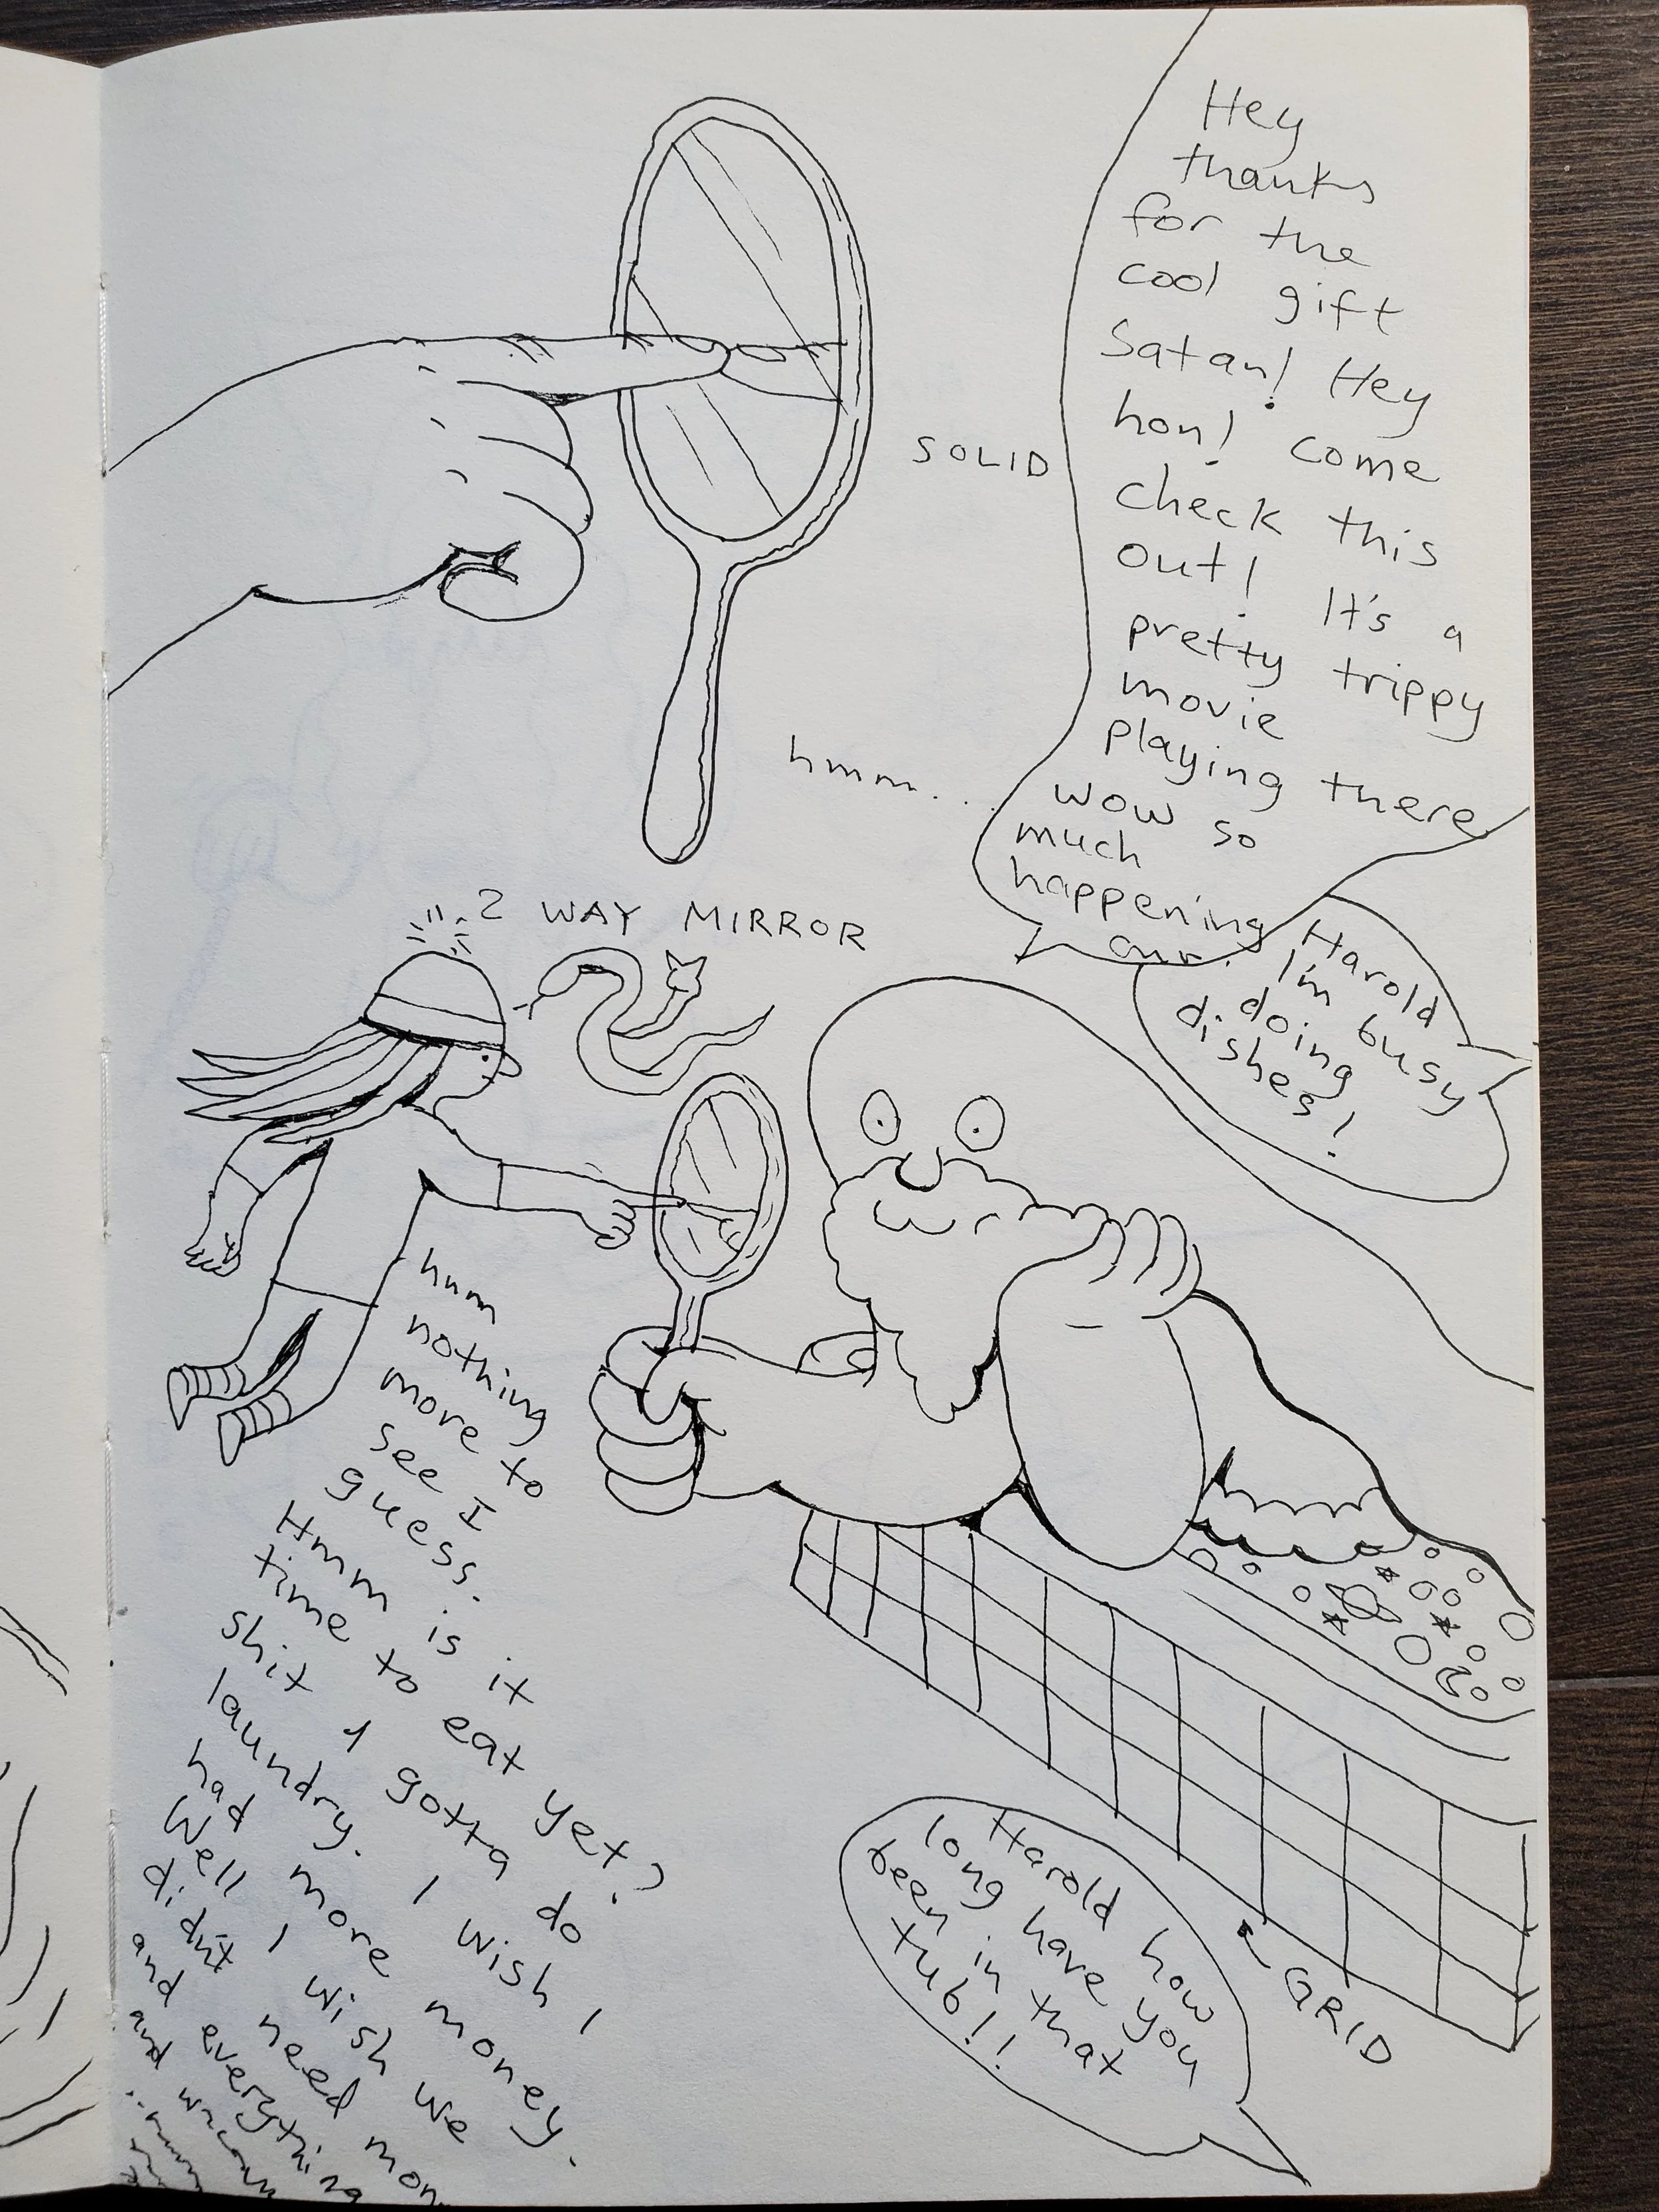 Hey
thanks
for the
cool gift
Satan! Hey
hon! come
check this
out! It's a
pretty trippy
movie
playing there
wow so
much
happening
SOLID
hmm...
Harold
I'm busy
doing
dishes!
2 WAY MIRROR
hmm
nothing
more to
see I
guess.
Hmm is it
time to eat yet?
shit I gotta do
laundry. I wish I
had more money.
Well I wish we
didnt need mon
and everything
and
Harold how
long have you
been in that
tub!!
GRID